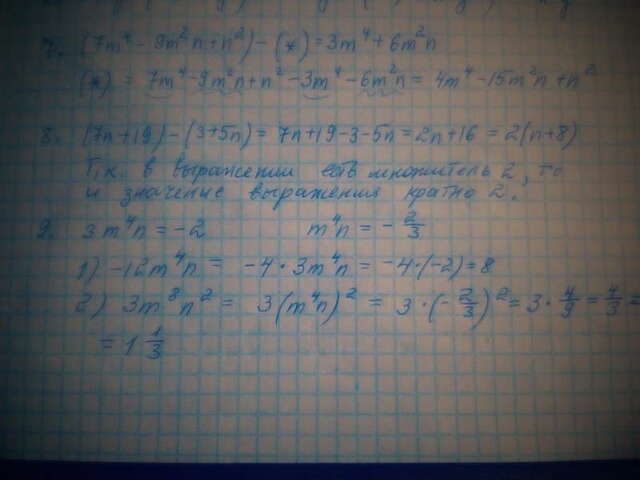 7. (7m⁴ - 9m²n + n²) - (*) = 3m⁴ + 6m²n
(*) = 7m⁴ - 9m²n + n² - 3m⁴ - 6m²n = 4m⁴ - 15m²n + n²
8. (7n + 19) - (3 + 5n) = 7n + 19 - 3 - 5n = 2n + 16 = 2(n + 8)
Т.к. в выражении есть множитель 2, то
и значение выражения кратно 2.
9. 3m⁴n = -2 m⁴n = -2/3
1) -12m⁴n = -4 · 3m⁴n = -4 · (-2) = 8
2) 3m⁸n² = 3(m⁴n)² = 3 · (-2/3)² = 3 · 4/9 = 4/3 =
= 1 1/3